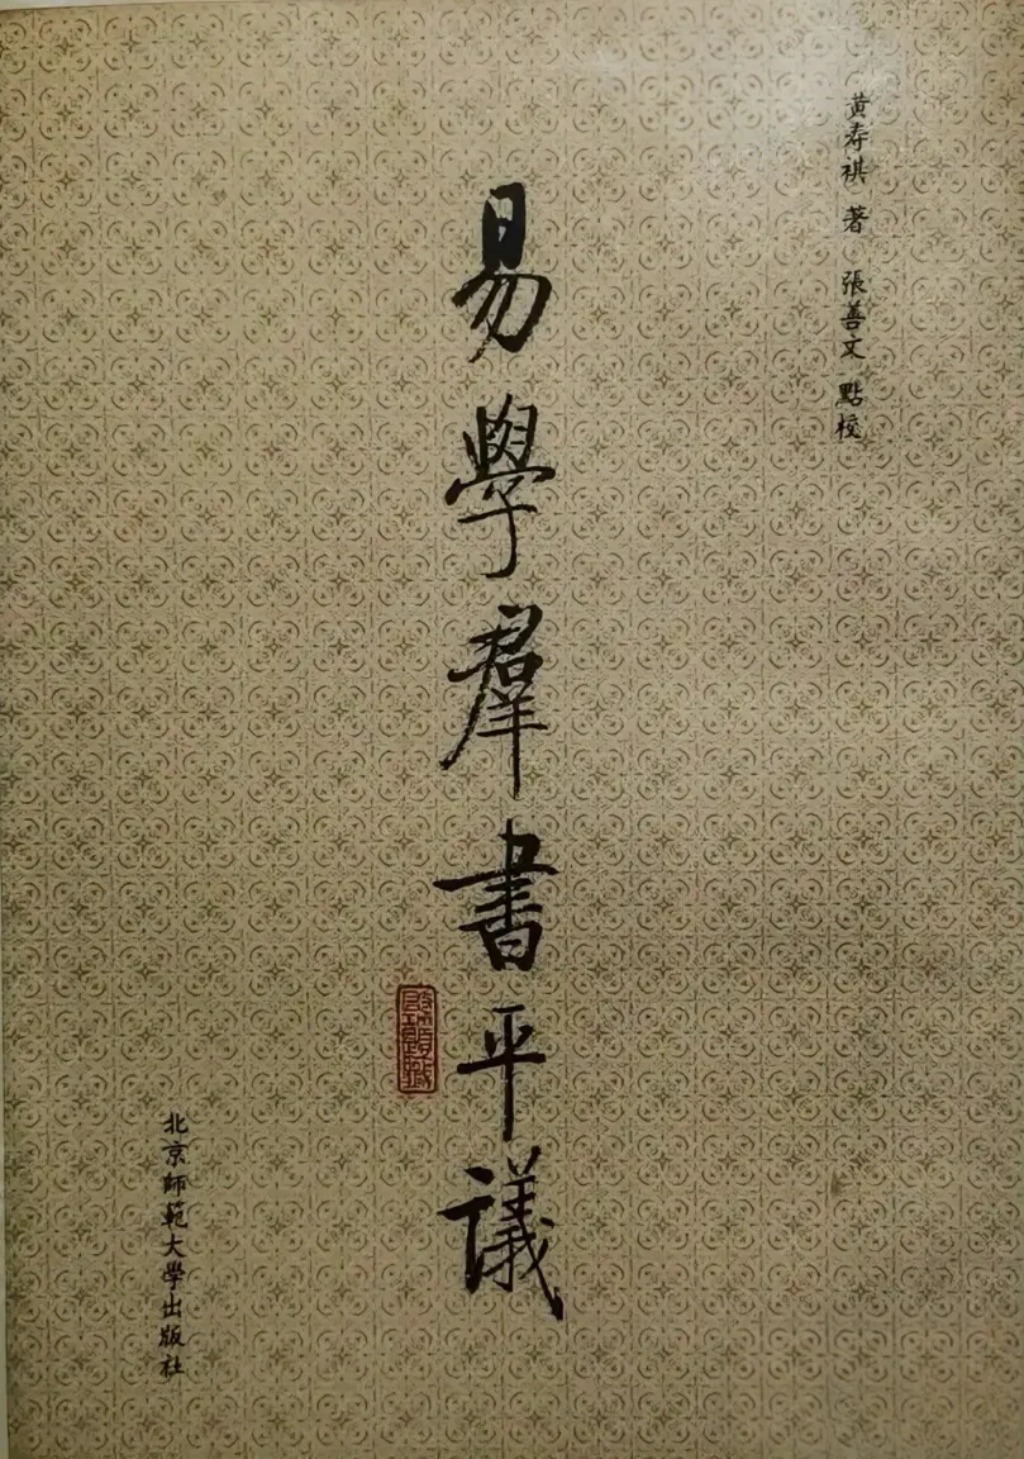 黄寿祺 著 張善文 點校
易學羣書平議
北京師範大學出版社